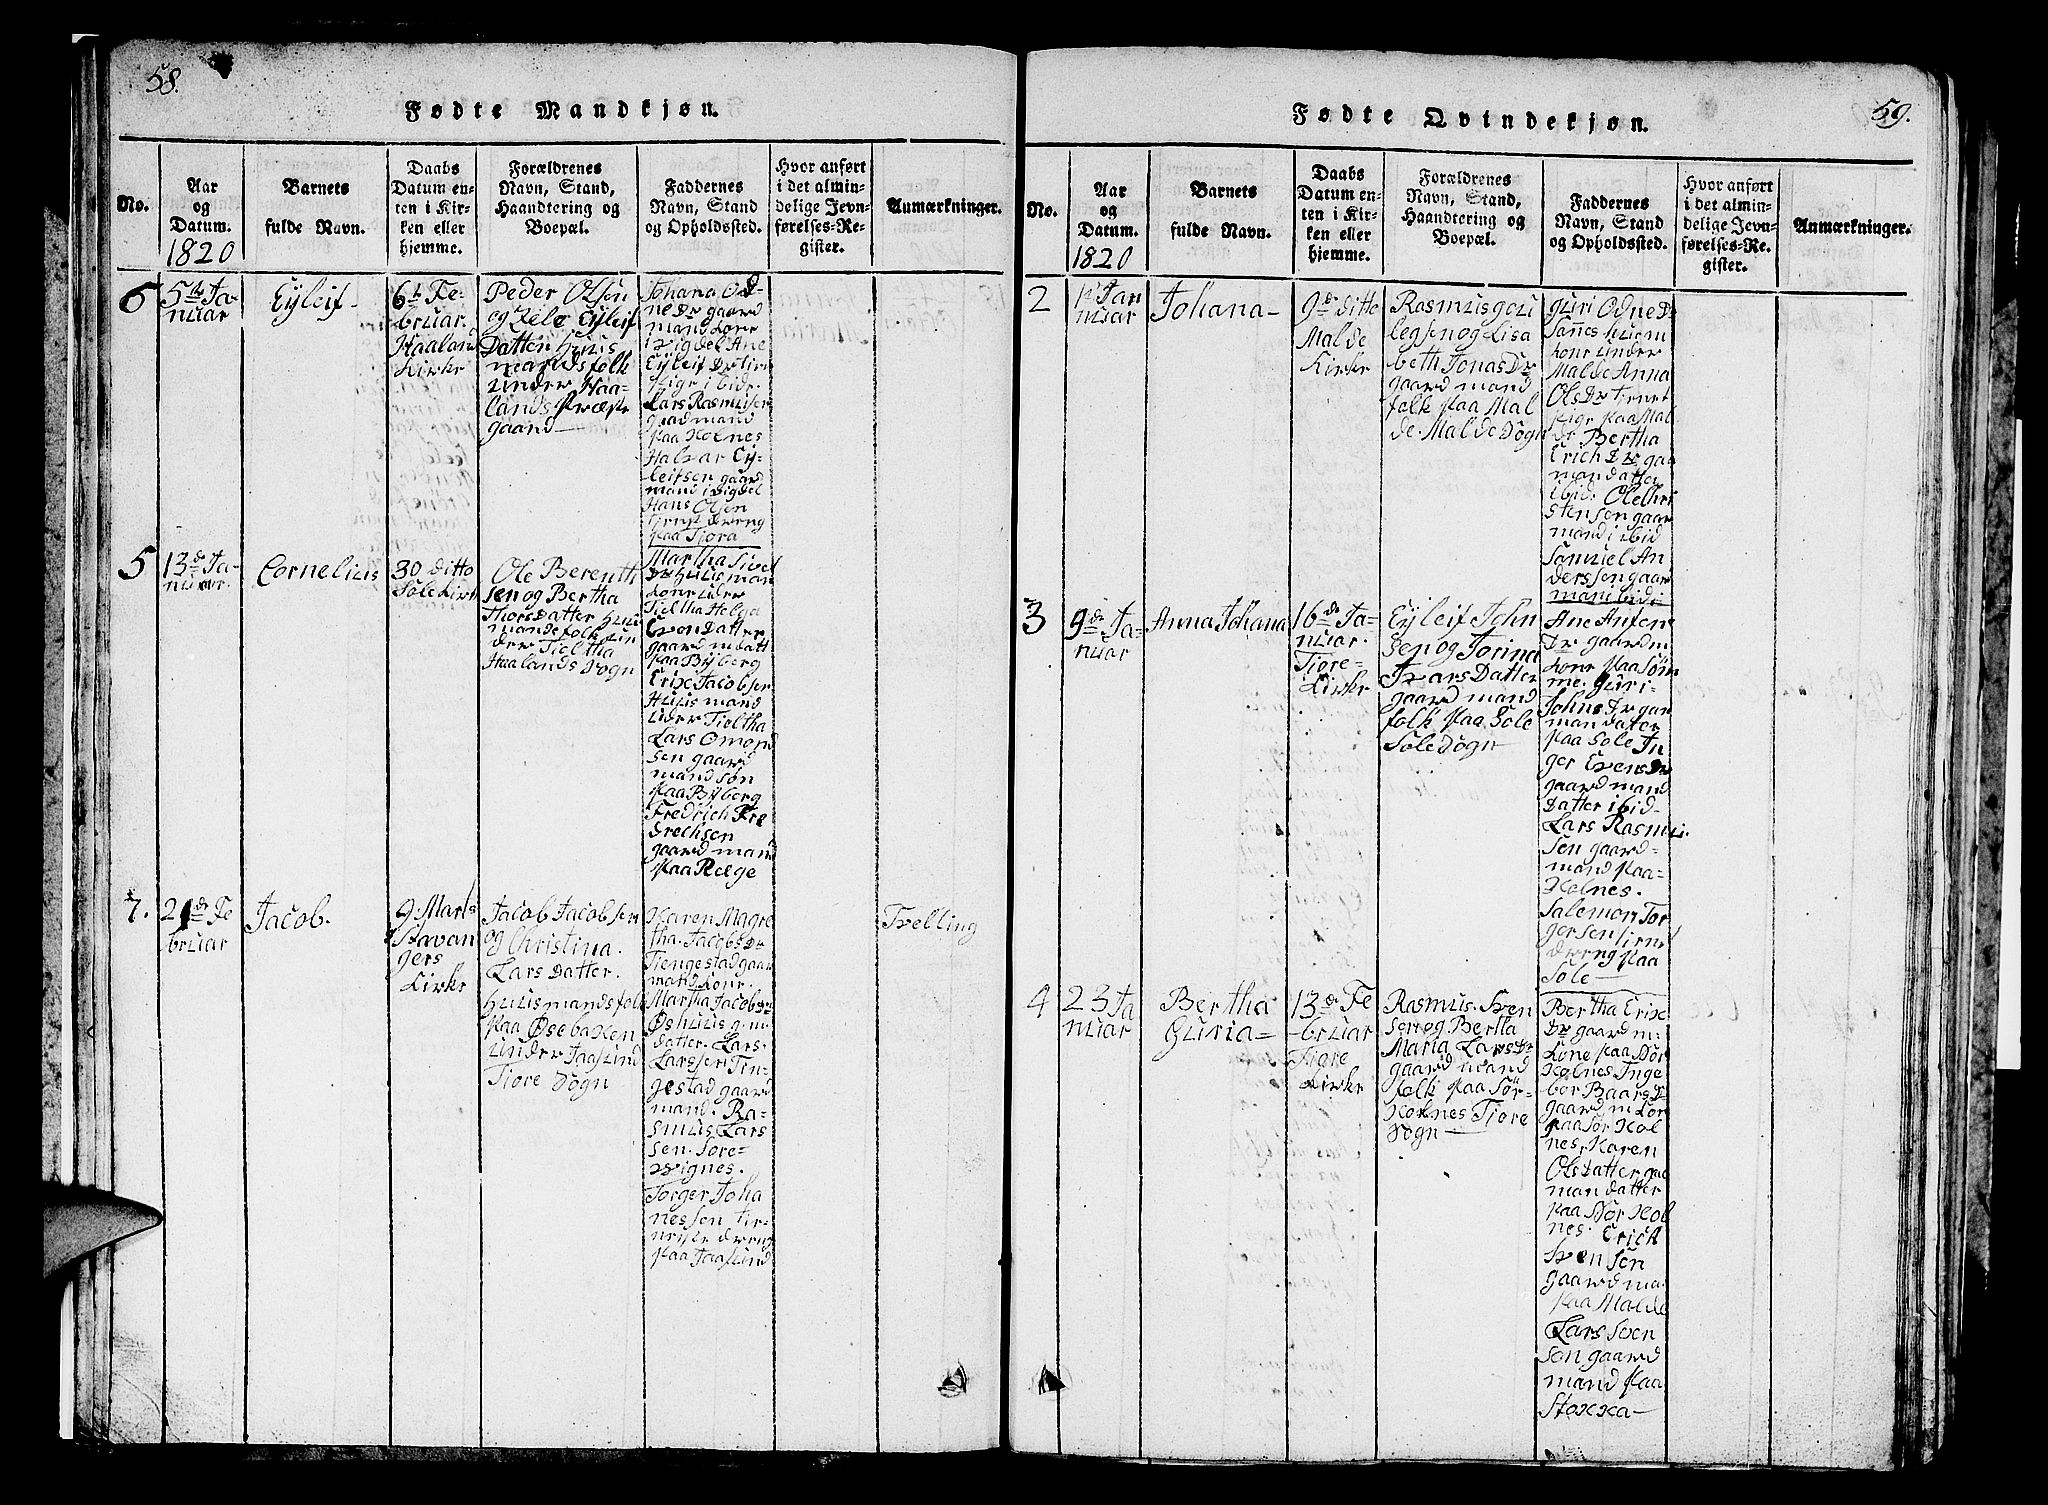 58.
Fødte Mandkjøn.
No.
Aar
og
Datum.
1820
Barnets
fulde Navn.
Daabs
Datum en-
ten i Kir-
ken eller
hjemme.
Forældrenes
Navn, Stand,
Haandtering og
Boepæl.
Faddernes
Navn, Stand
og Opholdssted.
Hvor anført
i det almin-
delige Jevn-
førelses-Re-
gister.
Anmærkninger.
6
5te Ja-
nuar
Eyleif-
6te Fe-
bruar
Haaland
Kirke
Peder Olsen
og Eyleif
Datter Huus
mandsfolk
under Haa-
lands Præste
gaard
Johana Od-
ne Dr gaard
mand kone
i vigdel Ane
Eyleif Dr
pige ibid.
Lars Rasmusen
gaardmand
paa Kolnes
Halvar Ey-
leifsen gaard
mand i vigdel
Hans Olsen
dreng
paa Tjora
5
13de Ja-
nuar.
Cornelius
30 ditto
Sole Kirke
Ole Berenth
sen og Bertha
Thors Datter Huus
mandsfolk un
der Tieltha
Haalands Sogn
Martha Sivel
Dr Huusman
kone under
Tieltha Helga
Even Datter
gaard m datt
paa Byberg
Eric Jacobsen
Huusmand
under Tieltha
Lars Omond
sen gaard
mand søn
paa Byberg
Fredrich Fre
drechsen
gaard mand
paa Ræge
7.
21de Fe
bruar
Jacob.
9 Marts
Stavan
gers
Kirke
Jacob Jacobsen
og Christina.
Lars Datter.
Huusmandsfolk
paa Øsebakken
under Jaasund
Tjore Sogn
Karen Magre
tha. Jacobs Dr
Tiengestad gaar
mand kone.
Martha Jacobs Dr
Øshuus g.m.
datter. Lars.
Larssen Tin-
gestad gaard
mand. Ra-
smus Lars
sen. Tore-
vignes.
Torger Joha
nessen
dreng
paa Jaasund
Tvelling
59.
Fødte Qvindekjøn.
No.
Aar
og
Datum.
1820
Barnets
fulde Navn.
Daabs
Datum en-
ten i Kir-
ken eller
hjemme.
Forældrenes
Navn, Stand,
Haandtering og
Boepæl.
Faddernes
Navn, Stand
og Opholdssted.
Hvor anført
i det almin-
delige Jevn-
førelses-Re-
gister.
Anmærkninger.
2
1te Jan
nuar
Johana-
9de ditto
Malde
Kirke
Rasmus
og Lisa
beth Jonas Dr
gaard mand
folk paa Mal
de. Malde Sogn
Guri Odne Dr
Sannes huusm
kone under
Malde Anna
Ols Dr tienest
pige paa Mal
de Bertha
Erich Dr gaa
mandatter
ibid. Ole Chri
stensen gaar
mand i ibid
Samuel An
derssen gaar
man ibid
3
9de Ja-
nuar
Anna Johana
16de Ja-
nuar.
Tjore-
Kirke
Eyleif John
sen og Torina
Ivars Datter
gaard mand
folk paa Sole
Sole Sogn
Ane Anfen
Dr gaard m
kone paa Søm
me. Guri-
Johns Dr gar
man datter
paa Sole In
ger Evens Dr
gaard mand
Datter ibid-
Lars Rasmu
sen gaard-
mand paa-
Kolnes.
Salemon Tor
gersen
dreng paa
Sole-
4
23 Ja
nuar
Bertha
Guria-
13de Fe
-bruar
Tjore
Kirke
Rasmus. Sven
sen og Bertha
Maria Lars Dr
gaard mand
folk paa Sør-
Kolnes Tjore
Sogn-
Bertha Eric
Dr gaard m.
kone paa Nør
Kolnes Inge
bor Baars D
gaard m kon
paa Sør Kol
nes, Karen
Olsdatter gaa
man datter
paa Nør Kol
nes. Erich
Svensen
gaard ma
paa Malde
Lars Sven
sen gaard
mand paa
Stokka-